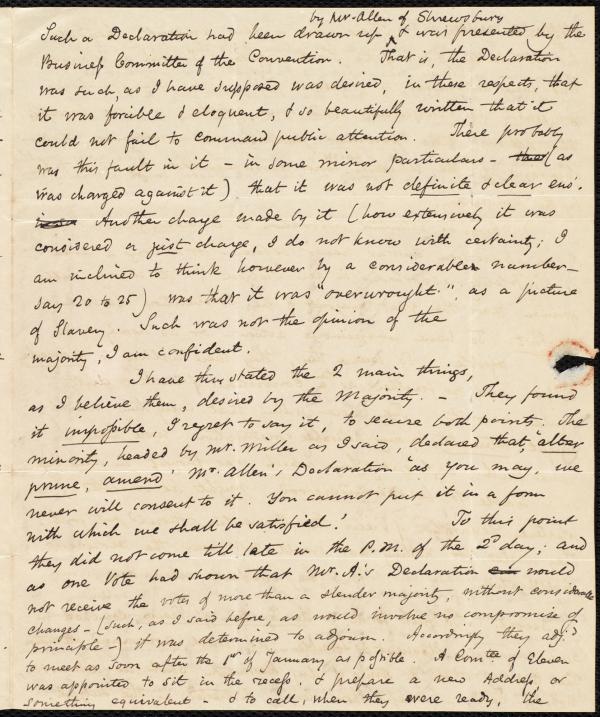 by Mr. Allen of Shrewsbury
Such a Declaration had been drawn up ^ & was presented by the
Business Committee of the Convention. That is, the Declaration
was such, as I have supposed was desired, in these respects, that
it was forcible & eloquent, & so beautifully written that it
could not fail to command public attention. There probably
was this fault in it - in some minor particulars - (as
was charged against it) that it was not definite & clear eno'.
Another charge made by it (how extensively it was
considered a just charge, I do not know with certainty; I
am inclined to think however by a considerable number -
say 20 to 25) was that it was "overwrought", as a picture
of Slavery. Such was not the opinion of the
majority, I am confident.
I have thus stated the 2 main things,
as I believe them, desired by the Majority. - They found
it impossible, I regret to say it, to secure both points. The
minority, headed by Mr. Miller as I said, declared that, "alter
prune, amend' Mr. Allen's Declaration "as you may, we
never will consent to it. You cannot put it in a form
with which we shall be satisfied.' To this point
they did not come till late in the P.M. of the 2d day; and
as one Vote had shown that Mr. A's Declaration would
not receive the votes of more than a slender majority, without considerable
changes - (such, as I said before, as would involve no compromise of
principle -) it was determined to adjourn. Accordingly they adjd
to meet as soon after the 1st of January as possible. A Comtee of Eleven
was appointed to sit in the recess, & prepare a new Address or
something equivalent - & to call, when they were ready, the